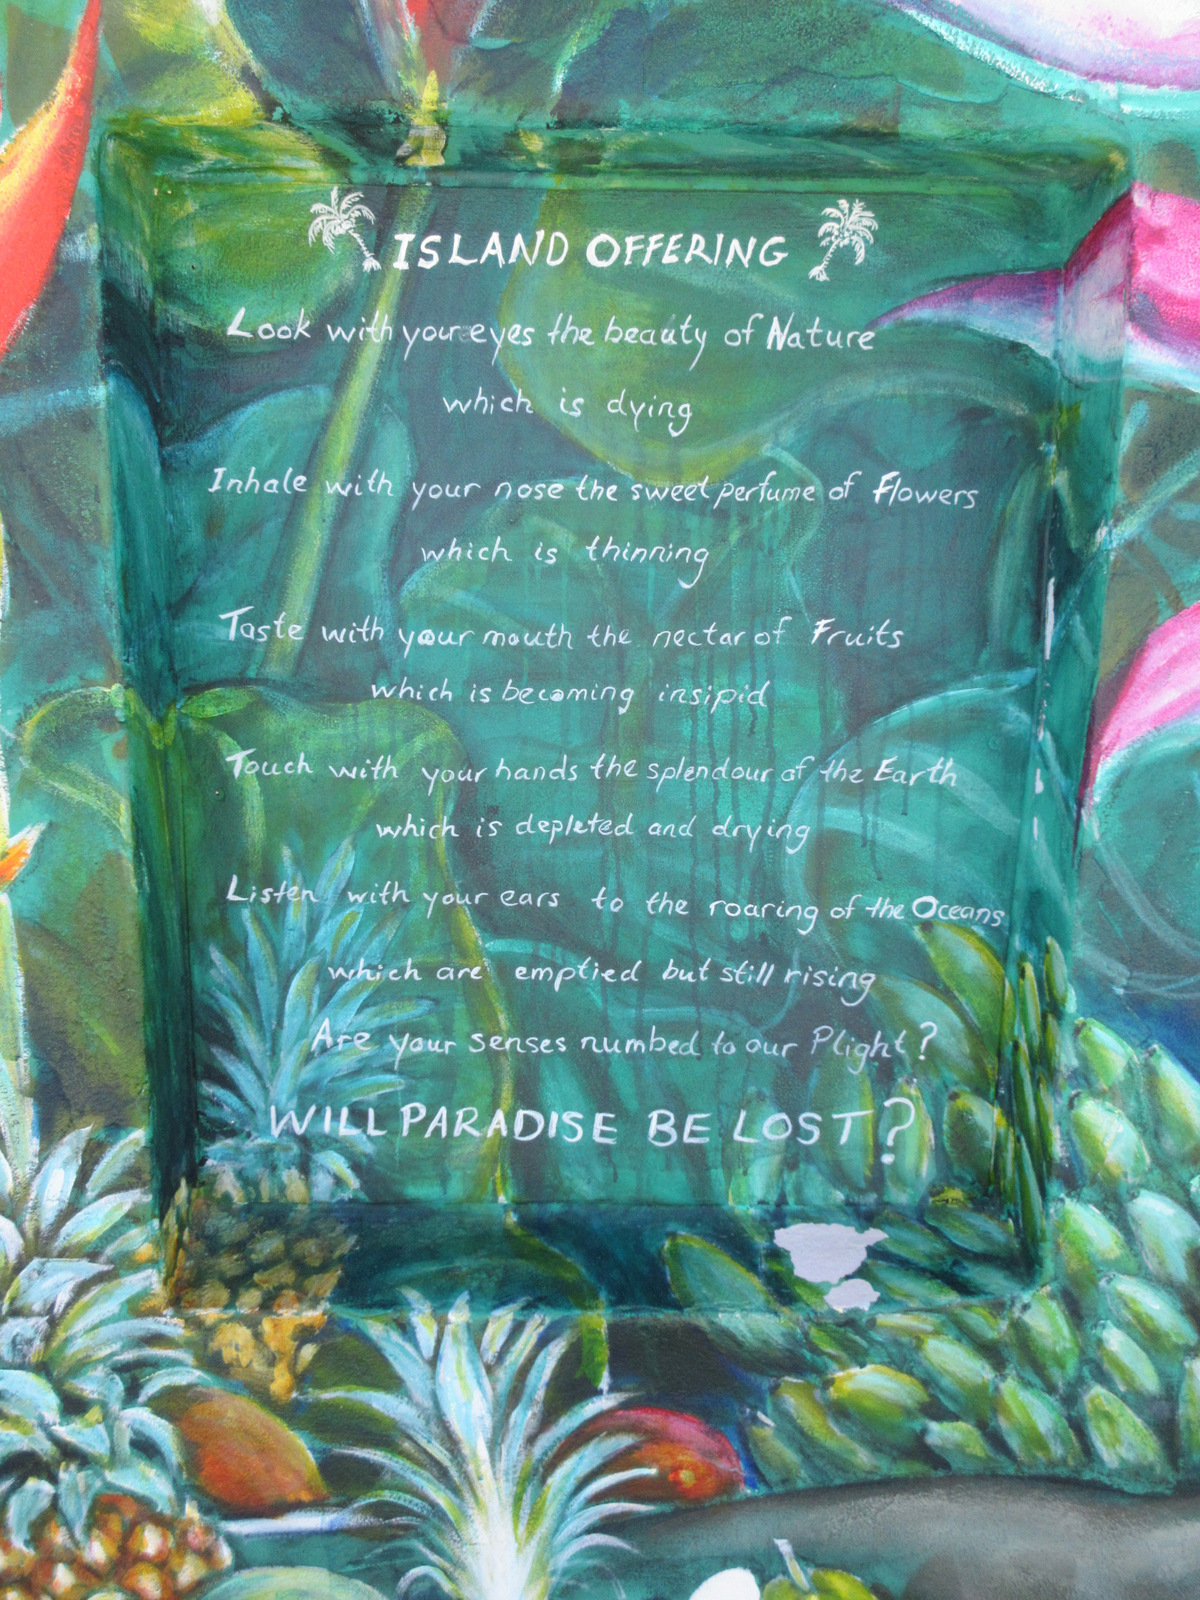 ISLAND OFFERING
Look with your eyes the beauty of Nature
which is dying
Inhale with your nose the sweet perfume of Flowers
which is thinning
Taste with your mouth the nectar of Fruits
which is becoming insipid
Touch with your hands the splendour of the Earth
which is depleted and drying
Listen with your ears to the roaring of the Oceans
which are emptied but still rising
Are your senses numbed to our Plight?
WILL PARADISE BE LOST?